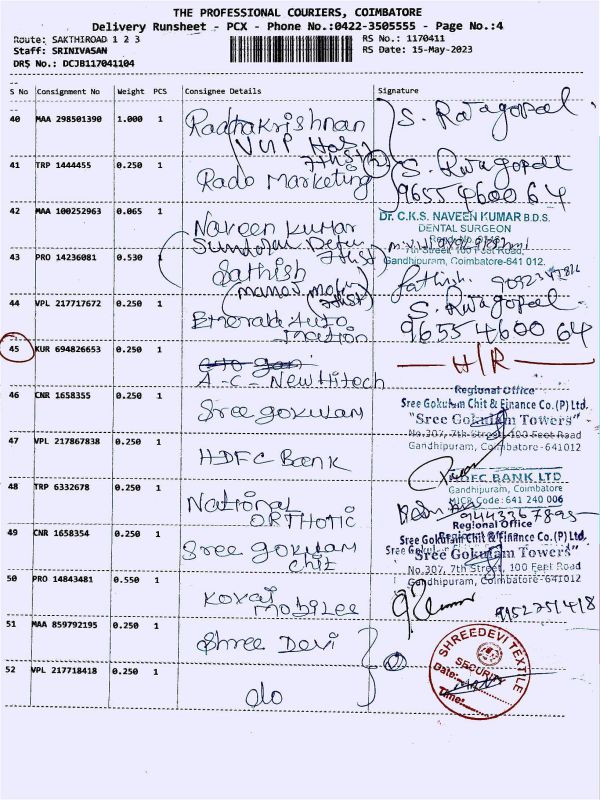 THE PROFESSIONAL COURIERS, COIMBATORE
Delivery Runsheet - PCX - Phone No.:0422-3505555 - Page No.:4
Route: SAKTHIROAD 1 2 3
RS No.: 1170411
Staff: SRINIVASAN
RS Date: 15-May-2023
DRS No.: DCJB117041104
S No Consignment No Weight PCS Consignee Details Signature
40 MAA 298501390 1.000 1 Radhakrishnan S. Rajagopal
41 TRP 1444455 0.250 1 Rado Marketing S. Rajagopal
9655460064
42 MAA 100252963 0.065 1 Naveen Kumar
Dr. C.K.S. NAVEEN KUMAR B.D.S.
DENTAL SURGEON
7th Street, 100 Feet Road,
Gandhipuram, Coimbatore-641 012.
43 PRO 14236081 0.530 1 Sathish Sathish
44 VPL 217717672 0.250 1 Emerald Auto S. Rajagopal
9655460064
45 KUR 694826653 0.250 1 A - C - New Hitech H/R
46 CNR 1658355 0.250 1 Sree gokulam
Regional Office
Sree Gokulam Chit & Finance Co.(P) Ltd.
"Sree Gokulam Towers"
No.307, 7th Street, 100 Feet Road
Gandhipuram, Coimbatore-641012
47 VPL 217867838 0.250 1 HDFC Bank
HDFC BANK LTD
Gandhipuram, Coimbatore
MICR Code: 641 240 006
48 TRP 6332678 0.250 1 National
ORTHOTIC
9443367895
49 CNR 1658354 0.250 1 Sree gokulam
chit
Regional Office
Sree Gokulam Chit & Finance Co.(P) Ltd.
"Sree Gokulam Towers"
No.307, 7th Street, 100 Feet Road
Gandhipuram, Coimbatore-641012
50 PRO 14843481 0.550 1 Kovai
mobiles
51 MAA 859792195 0.250 1 Shree Devi
52 VPL 217718418 0.250 1 do
SHREEDEVI TEXTILE
SECURITY
Date:
Time: